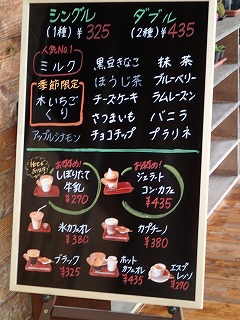 シングル ダブル
(1種) ¥325 (2種) ¥435
人気No.1
ミルク 黒豆きなこ 抹茶
季節限定 ほうじ茶 ブルーベリー
木いちご チーズケーキ ラムレーズン
くり さつまいも バニラ
アップルシナモン チョコチップ プラリネ
おすすめ! おすすめ!
しぼりたて ジェラート
牛乳 コン・カフェ
¥270 ¥435
氷カフェオレ カプチーノ
¥380 ¥380
ブラック ホット エスプ
¥325 カフェオレ レッソ
¥435 ¥270